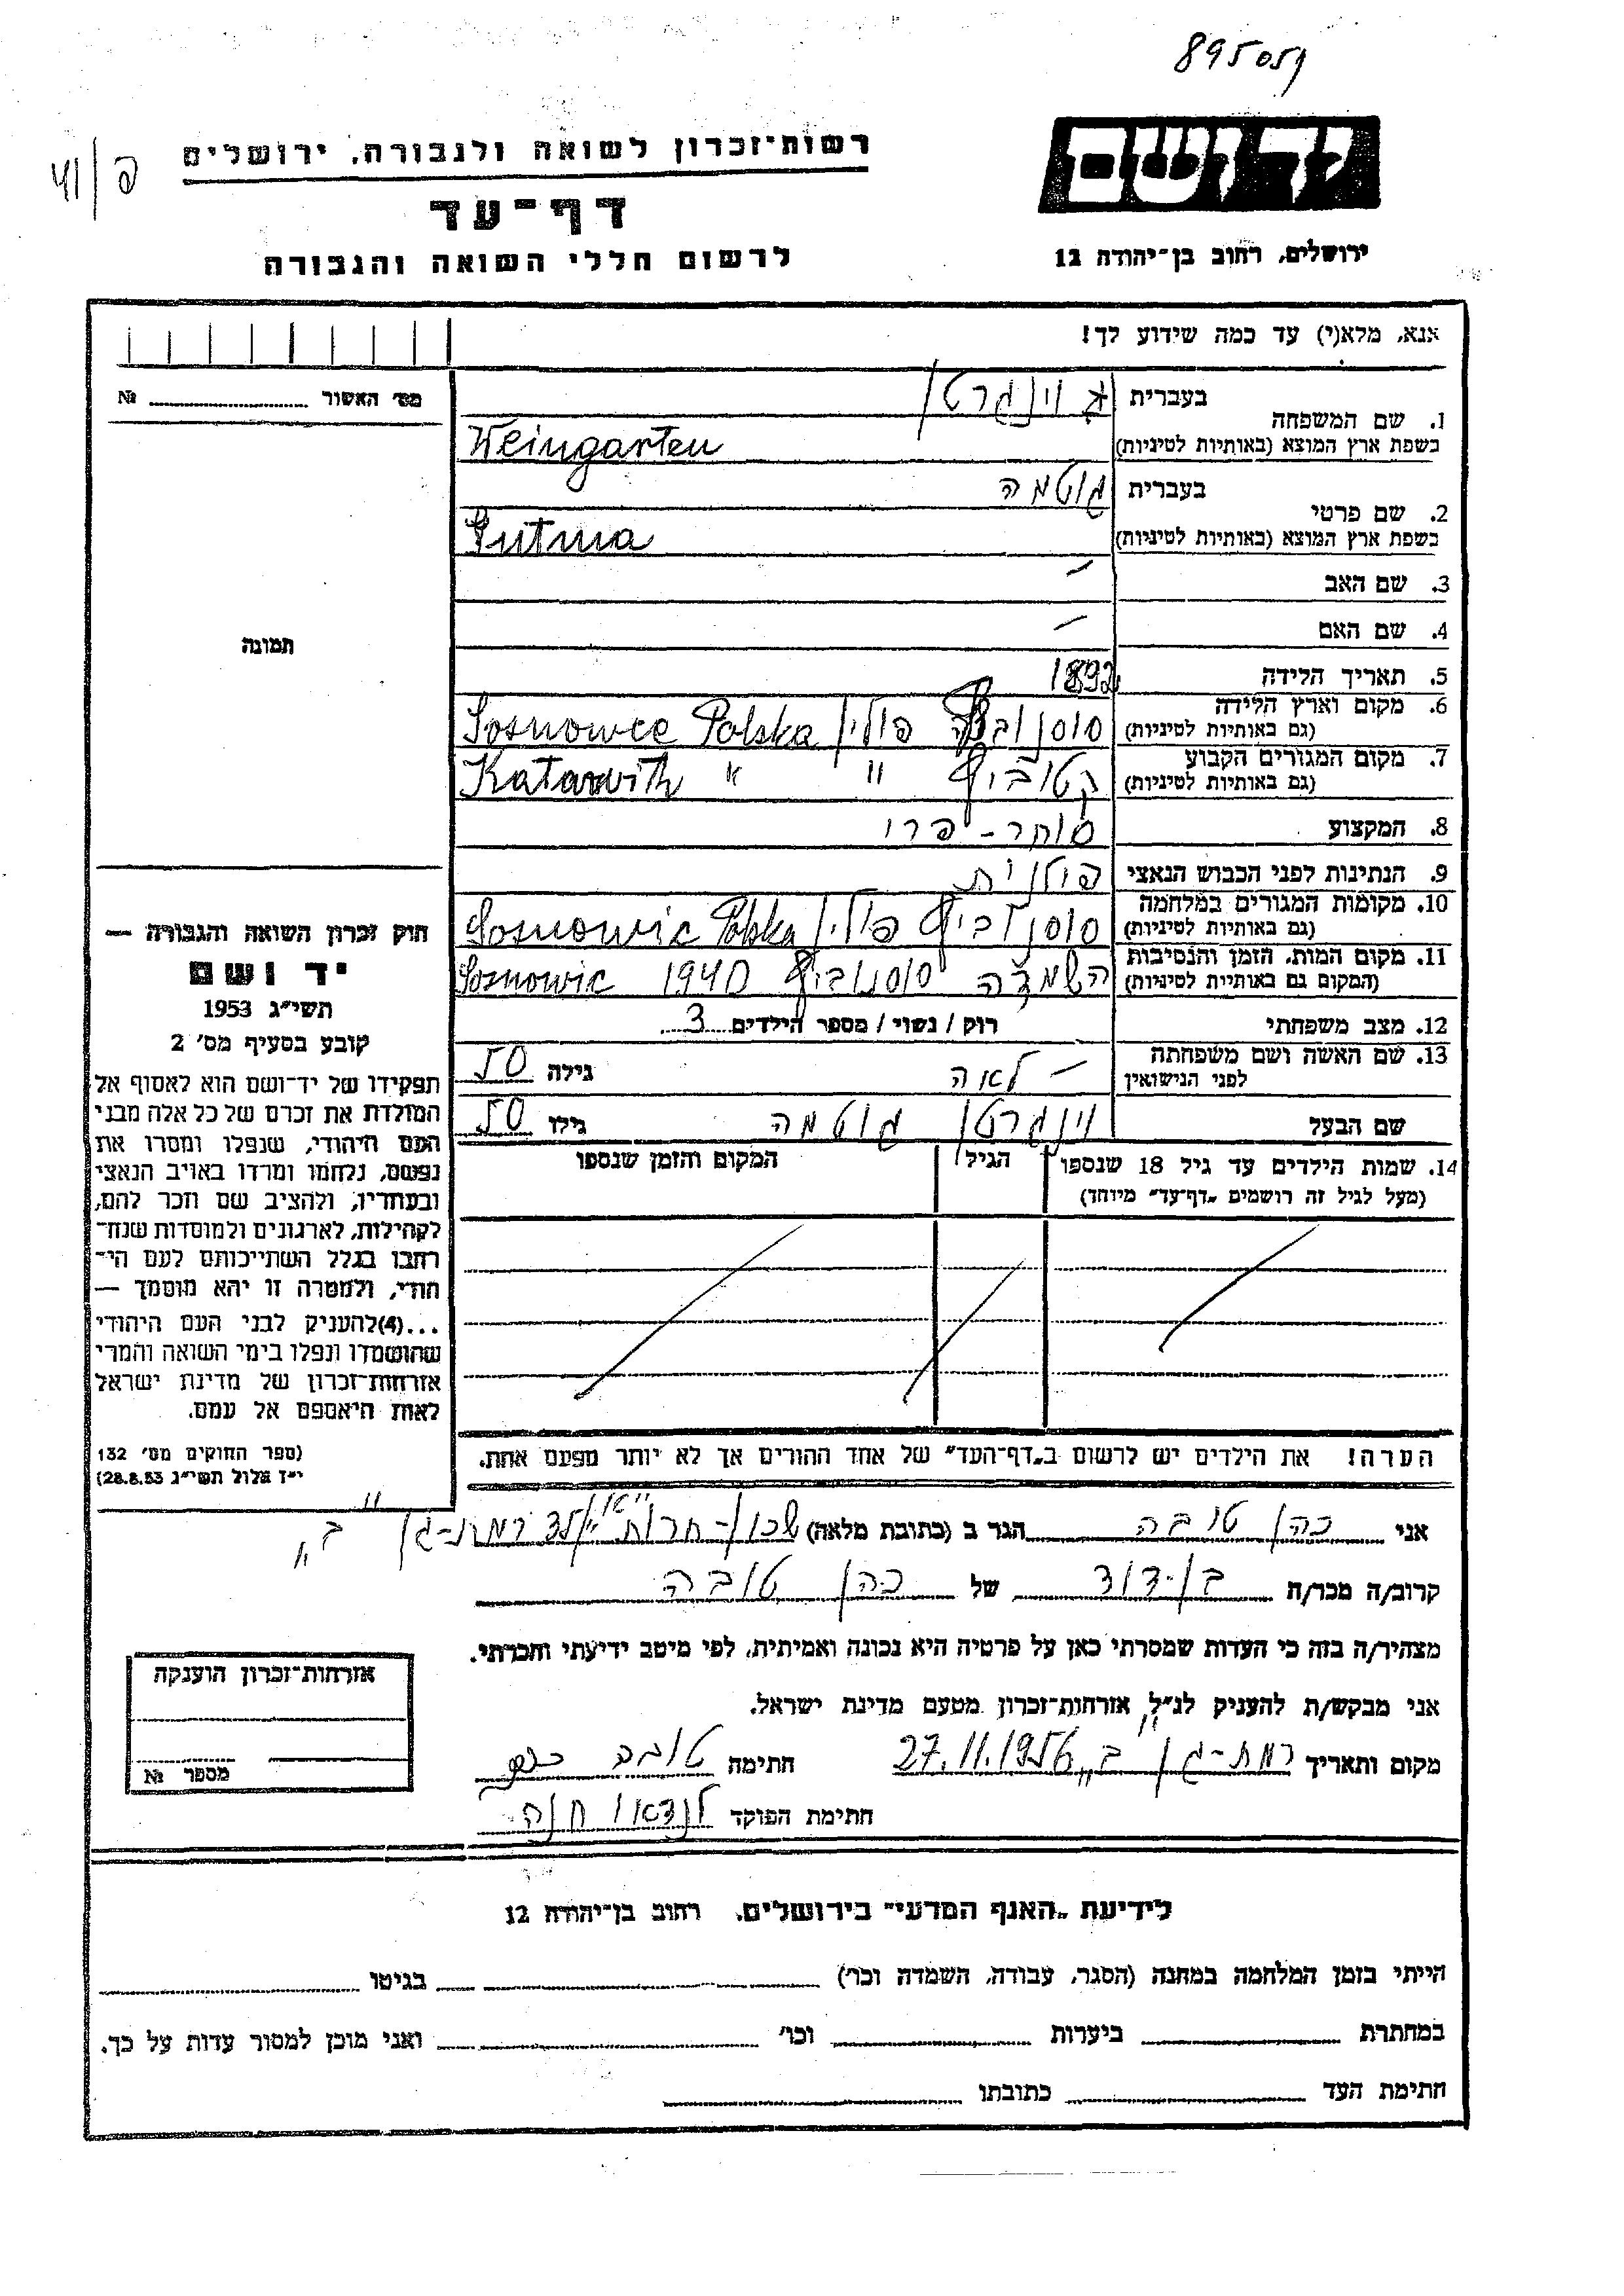 895059
יד ושם
ירושלים, רחוב בן־יהודה 12
רשות־זכרון לשואה ולגבורה, ירושלים
דף־עד
לרשום חללי השואה והגבורה
אנא, מלא(י) עד כמה שידוע לך!
מס׳ האשור № 
1. שם המשפחה בעברית וינגרטן
בשפת ארץ המוצא (באותיות לטיניות) Weingarten
2. שם פרטי בעברית גוטמה
בשפת ארץ המוצא (באותיות לטיניות) Gutma
3. שם האב —
4. שם האם —
5. תאריך הלידה 1892
6. מקום וארץ הלידה (גם באותיות לטיניות) פולין Sosnowce Polska
7. מקום המגורים הקבוע (גם באותיות לטיניות) קטוביץ " Katowith "
8. המקצוע סוחר - פרו
9. הנתינות לפני הכבוש הנאצי פולנית
10. מקומות המגורים במלחמה (גם באותיות לטיניות) סוסנוביץ פולין Sosnowic Polska
11. מקום המות, הזמן והנסיבות (המקום גם באותיות לטיניות) השמדה סוסנוביץ 1940 Soznowic
12. מצב משפחתי רוק / נשוי / מספר הילדים 3
13. שם האשה ושם משפחתה לפני הנישואין לאה — גילה 50
שם הבעל וינגרטן גוטמה גילו 50
14. שמות הילדים עד גיל 18 שנספו הגיל המקום והזמן שנספו
(מעל לגיל זה רושמים „דף־עד" מיוחד)
הערה! את הילדים יש לרשום ב„דף־העד" של אחד ההורים אך לא יותר מפעם אחת.
תמונה
חוק זכרון השואה והגבורה —
יד ושם
תשי״ג 1953
קובע בסעיף מס׳ 2
תפקידו של יד־ושם הוא לאסוף אל
המולדת את זכרם של כל אלה מבני
העם היהודי, שנפלו ומסרו את
נפשם, נלחמו ומרדו באויב הנאצי
ובעוזריו, ולהציב שם וזכר להם,
לקהילות, לארגונים ולמוסדות שנח־
רבו בגלל השתייכותם לעם הי־
הודי, ולמטרה זו יהא מוסמך —
...(4)להעניק לבני העם היהודי
שהושמדו ונפלו בימי השואה והמרי
אזרחות־זכרון של מדינת ישראל
לאות היאספם אל עמם.
(ספר החוקים מס׳ 132
י״ז אלול תשי״ג 28.8.53)
אני כהן טובה הגר ב (כתובת מלאה) שכון-חרות רמת-גן ב
קרוב/ה מכר/ה בן-דוד של כהן טובה
מצהיר/ה בזה כי העדות שמסרתי כאן על פרטיה היא נכונה ואמיתית, לפי מיטב ידיעתי והכרתי.
אני מבקש/ת להעניק לנ״ל אזרחות־זכרון מטעם מדינת ישראל.
מקום ותאריך רמת-גן ב 27.11.1956 חתימה טובה כהן
חתימת הפוקד לנדאו חנה
אזרחות־זכרון הוענקה
מספר №
לידיעת „האגף המדעי" בירושלים, רחוב בן־יהודה 12
הייתי בזמן המלחמה במחנה (הסגר, עבודה, השמדה וכו׳) בגיטו
במחתרת ביערות וכו׳ ואני מוכן למסור עדות על כך.
חתימת העד כתובתו